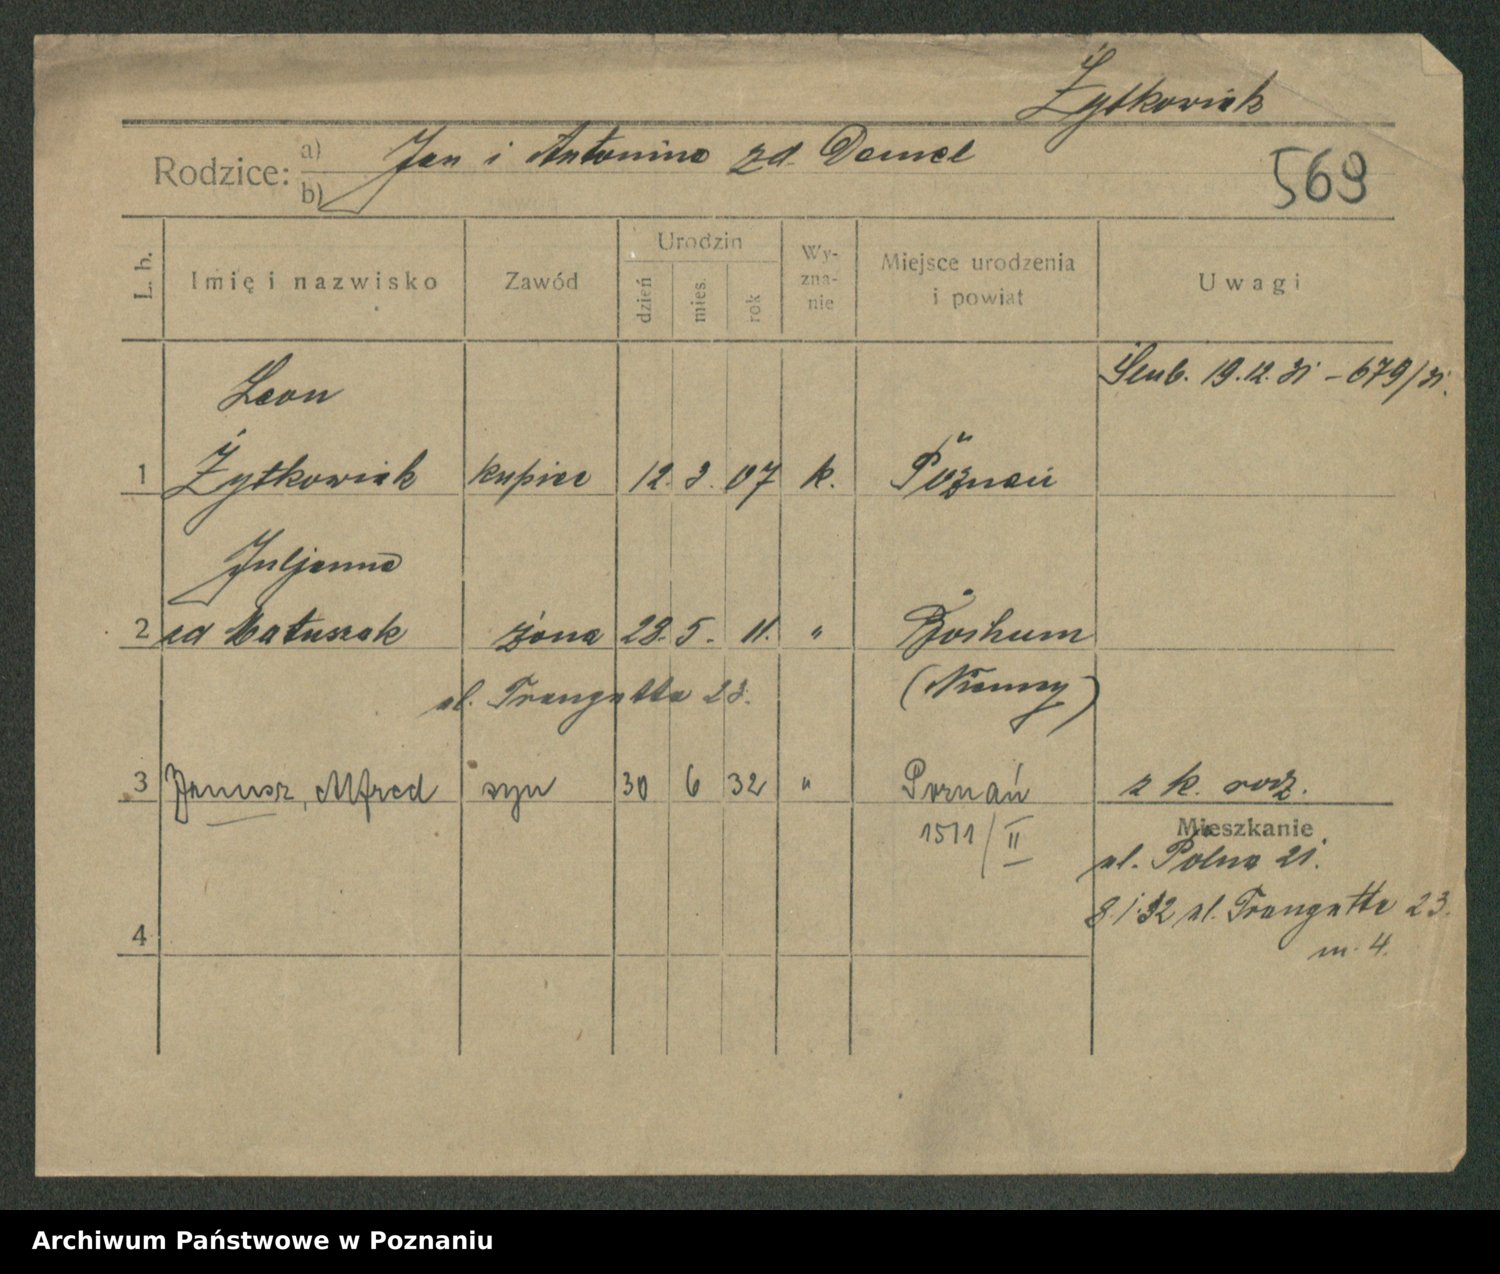 Żytkowiak
Rodzice: a) Jan i Antonina zd. Demel
b)
569
L. b.
Imię i nazwisko
Zawód
Urodzin
dzień
mies.
rok
Wy-
zna-
nie
Miejsce urodzenia
i powiat
Uwagi
Ślub. 19.12.31 – 679/31.
Leon
1 Żytkowiak kupiec 12. 3. 07 k. Poznań
Juljanna
2 zd Matuszak żona 28. 5. 11. " Bochum
ul. Traugutta 23. (Niemcy)
3 Janusz, Alfred syn 30 6 32 " Poznań z k. rodz.
1511/II
Mieszkanie
ul. Polna 21.
8.1.32 ul. Traugutta 23.
m. 4.
4
Archiwum Państwowe w Poznaniu